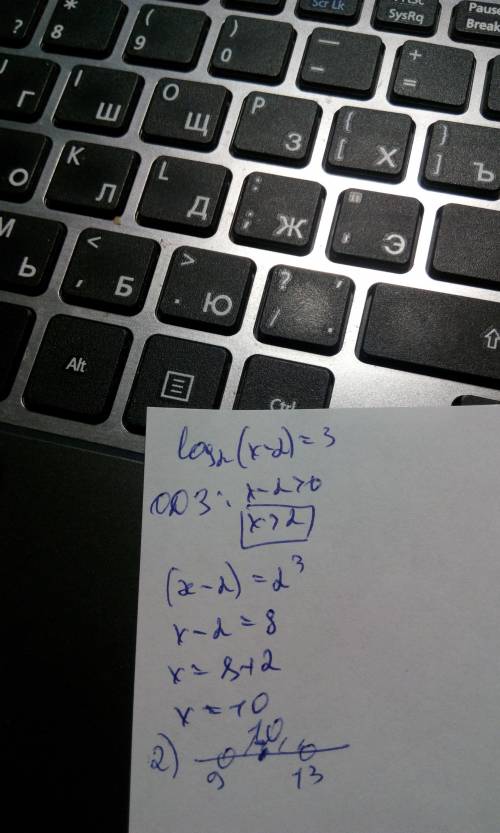 Scr Lk
SysRq
Pause
Break
?
* 8
( 9
) 0
— -
+ =
Г
I Ш
O Щ
P З
{ [ Х
} ] Ъ
О
K Л
L Д
: ; Ж
" ' Э
M Ь
< , Б
> . Ю
? / , .
Alt
Ctrl
log₂(x-2)=3
ОДЗ: x-2>0
x>2
(x-2)=2³
x-2=8
x=8+2
x=10
2) 10
9 13